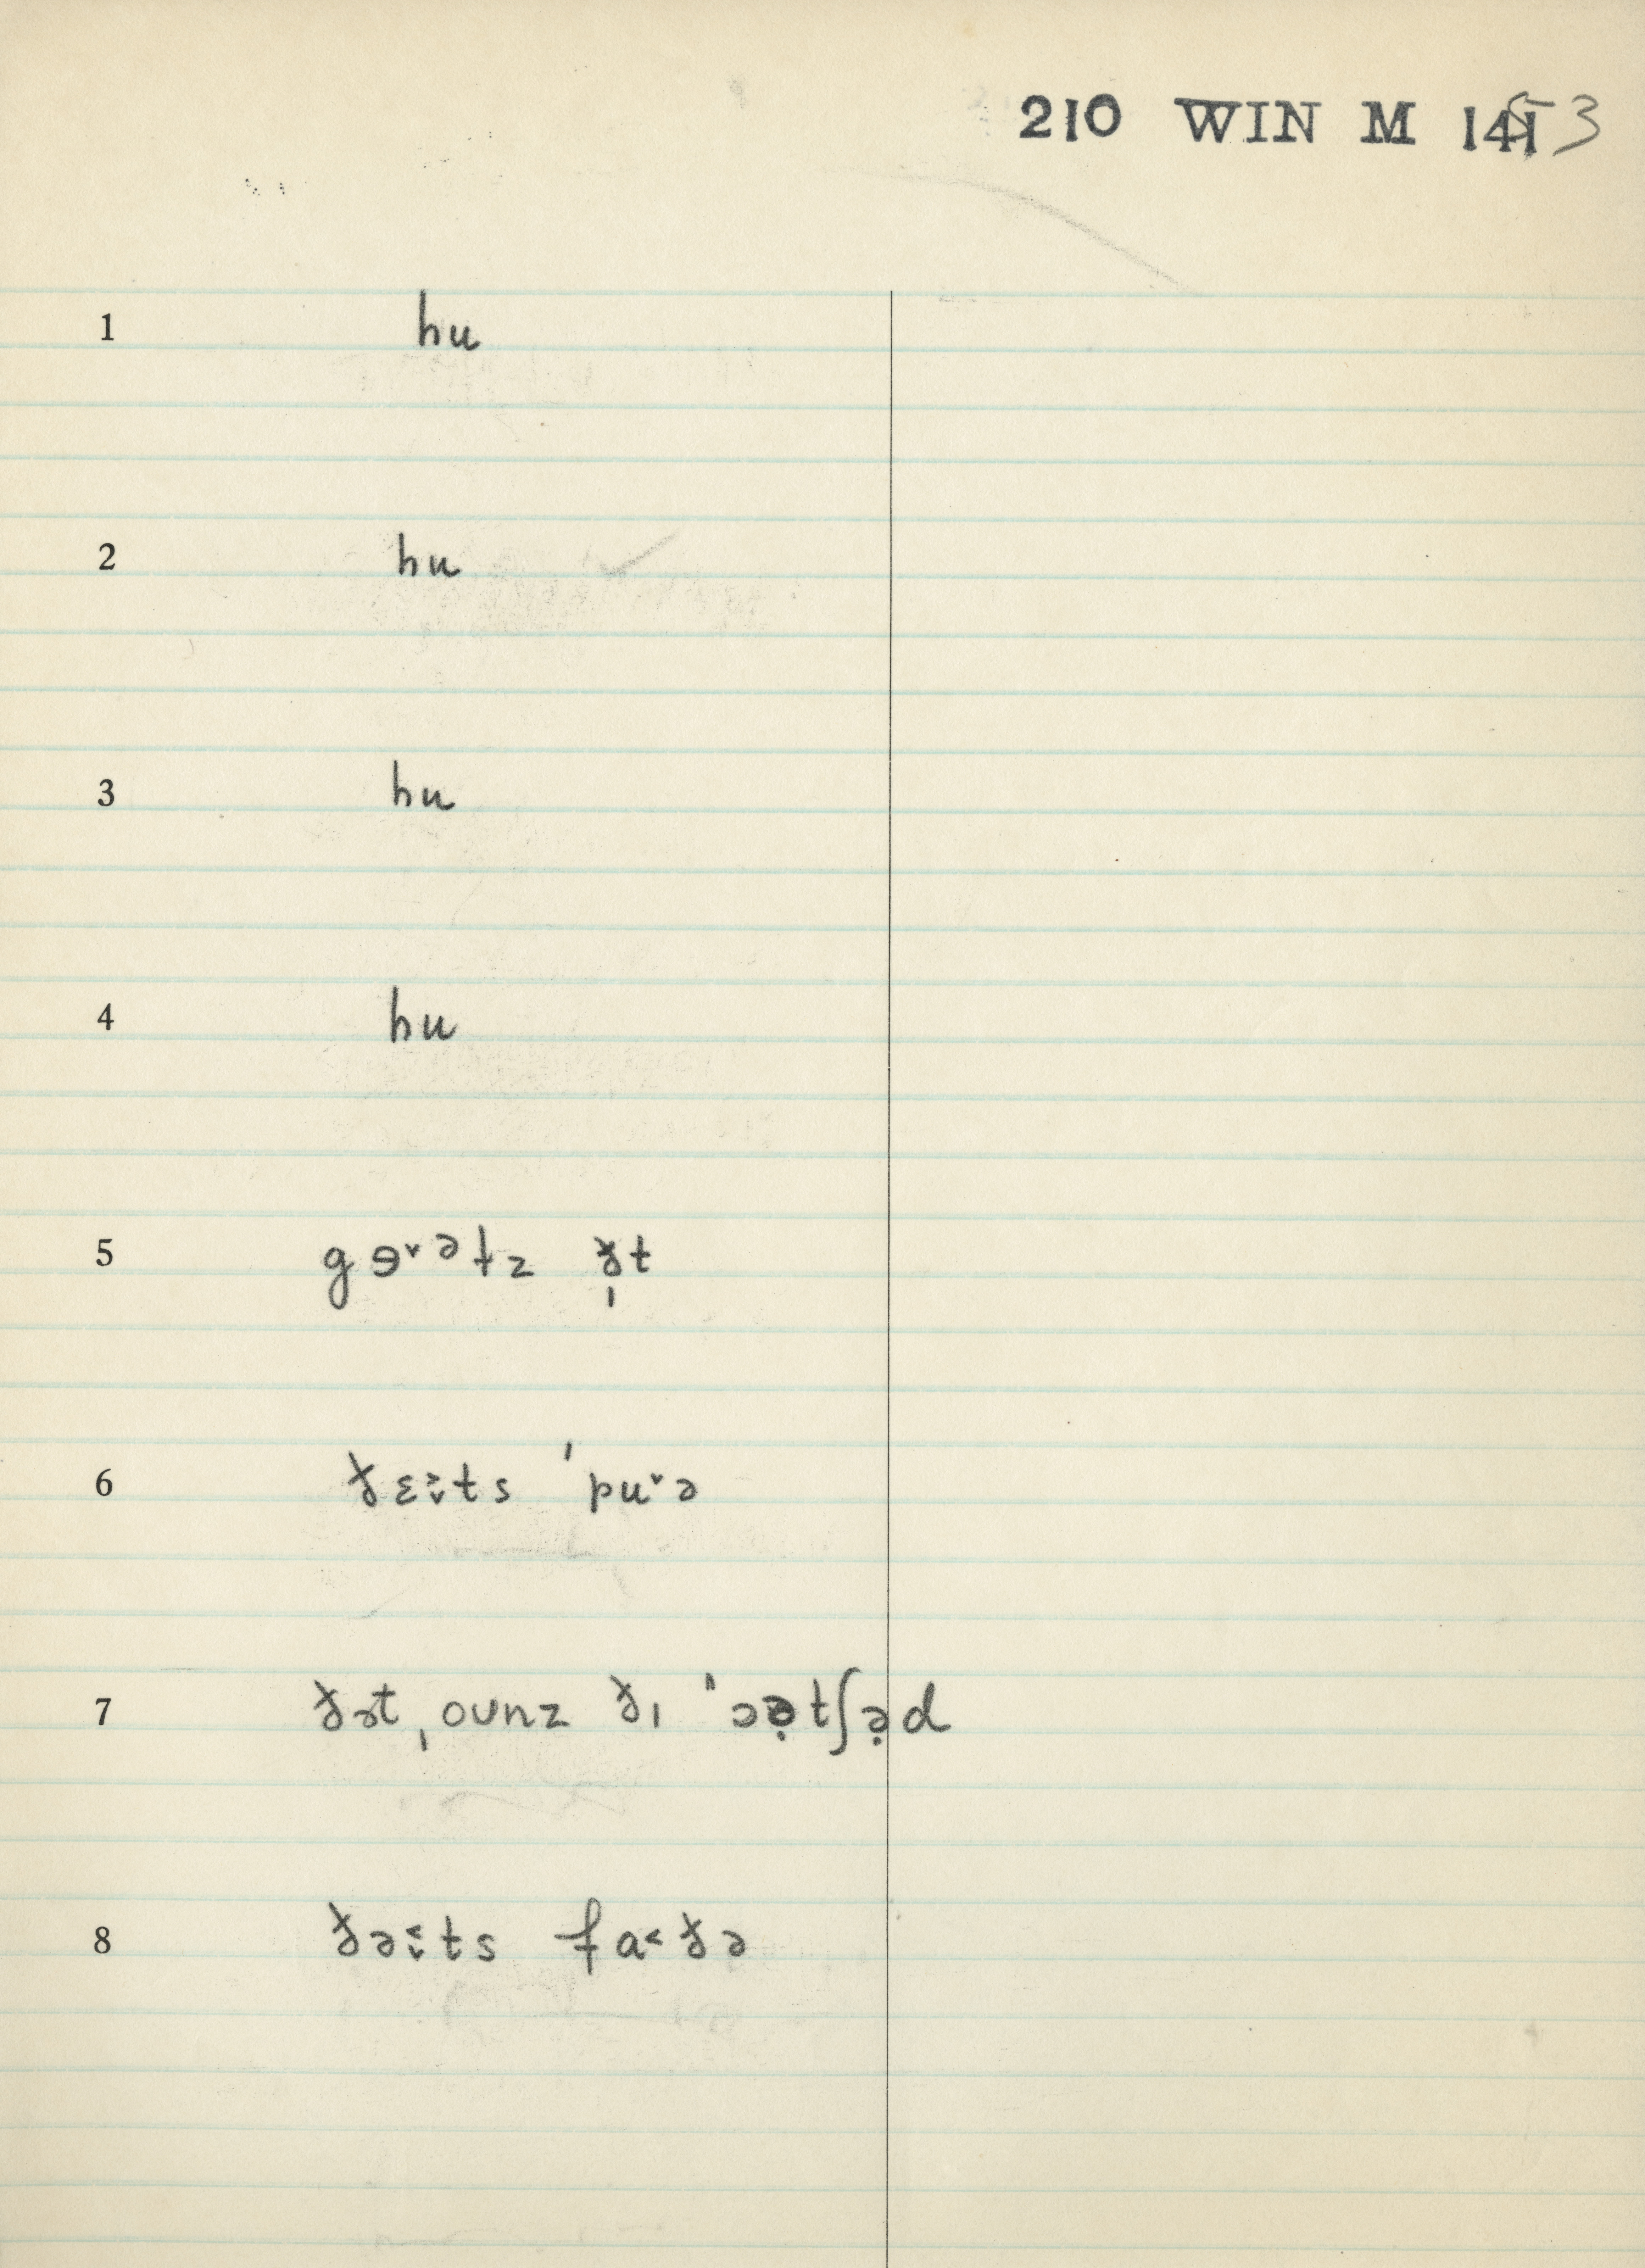 210 WIN M 1453
1 hu
2 hu
3 hu
4 hu
5 gɘ˅ᵊtz ð̩t
6 ðɛ˔˞ts ˈpu˅ə
7 ðət ˌounz ðɪ ˈɔə̣tʃə̣d
8 ðəːts fa˂ðə